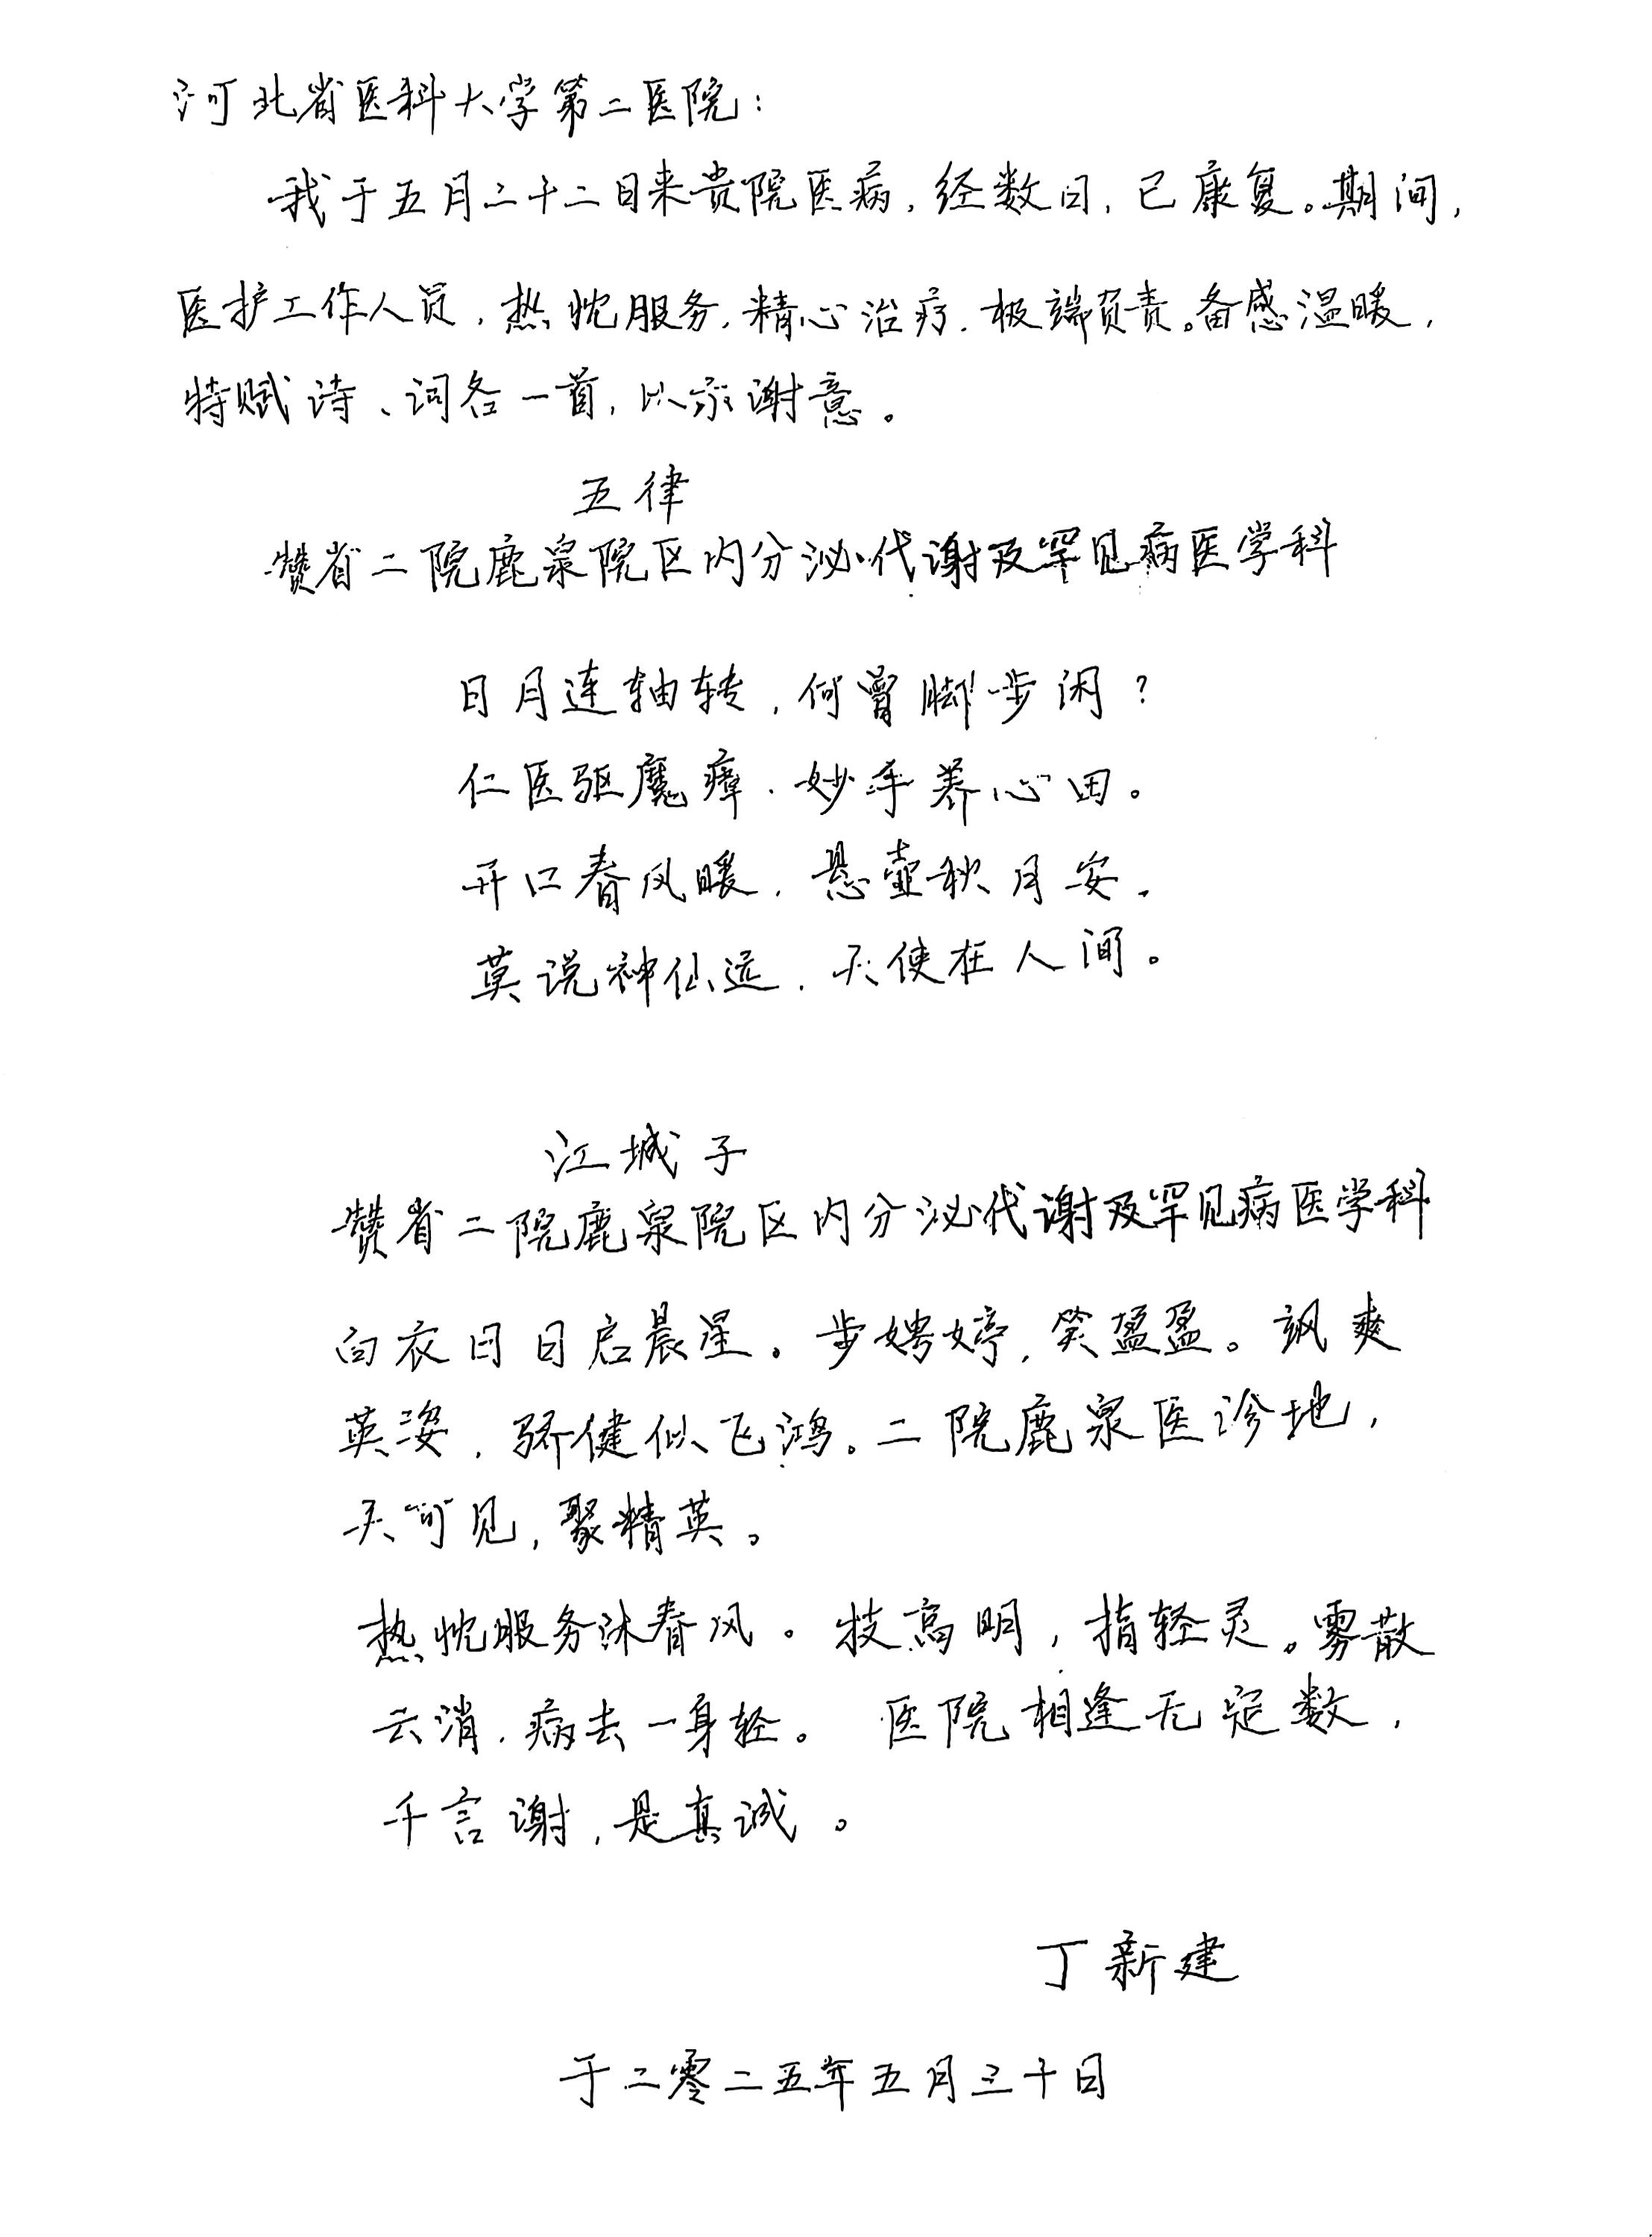 河北省医科大学第二医院：
我于五月二十二日来贵院医病，经数日，已康复。期间，
医护工作人员，热忱服务，精心治疗，极端负责。备感温暖，
特赋诗、词各一首，以示谢意。
五律
赞省二院鹿泉院区内分泌代谢及罕见病医学科
日月连轴转，何曾脚步闲？
仁医驱魔瘴，妙手养心田。
开口春风暖，悬壶秋月安。
莫说神仙远，天使在人间。
江城子
赞省二院鹿泉院区内分泌代谢及罕见病医学科
白衣日日启晨星。步娉婷，笑盈盈。飒爽
英姿，骄健似飞鸿。二院鹿泉医诊地，
天可见，聚精英。
热忱服务沐春风。技高明，指轻灵。雾散
云消，病去一身轻。 医院相逢无定数，
千言谢，是真诚。
丁新建
于二零二五年五月三十日